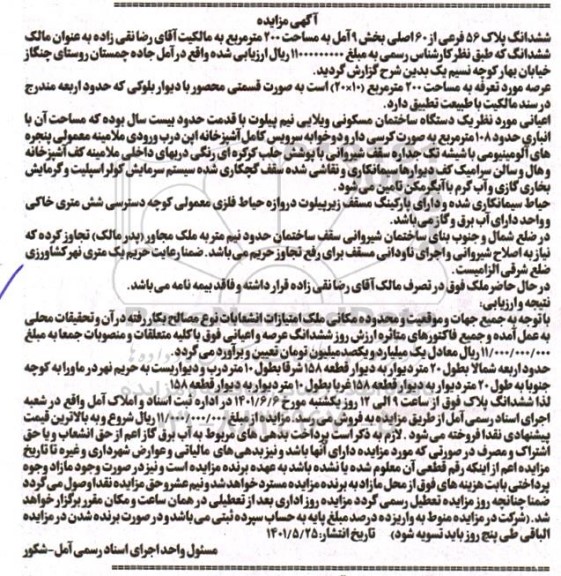 آگهی مزایده
ششدانگ پلاک ۵۶ فرعی از ۶۰ اصلی بخش ۹ آمل به مساحت ۲۰۰ مترمربع به مالکیت آقای رضا نقی زاده به عنوان مالک
ششدانگ که طبق نظر کارشناس رسمی به مبلغ ۱۱۰۰۰۰۰۰۰۰۰ ریال ارزیابی شده واقع در آمل جاده چمستان روستای چنگاز
خیابان بهار کوچه نسیم یک بدین شرح گزارش گردید.
عرصه مورد تعرفه به مساحت ۲۰۰ مترمربع (۱۰×۲۰) است به صورت قسمتی محصور با دیوار بلوکی که حدود اربعه مندرج
در سند مالکیت با طبیعت تطبیق دارد.
اعیانی مورد نظر یک دستگاه ساختمان مسکونی ویلایی نیم پیلوت با قدمت حدود بیست سال بوده که مساحت آن با
انباری حدود ۱۰۸ مترمربع به صورت کرسی دار و دوخوابه سرویس کامل آشپزخانه اپن درب ورودی ملامینه معمولی پنجره
های آلومینیومی با شیشه تک جداره سقف شیروانی با پوشش حلب کرکره ای رنگی دربهای داخلی ملامینه کف آشپزخانه
و هال و سالن سرامیک کف دیوارها سیمانکاری و نقاشی شده سقف گچکاری شده سیستم سرمایش کولر اسپلیت و گرمایش
بخاری گازی و آب گرم با آبگرمکن تامین می شود.
حیاط سیمانکاری شده و دارای پارکینگ مسقف زیرپیلوت دروازه حیاط فلزی معمولی کوچه دسترسی شش متری خاکی
و واحد دارای آب برق و گاز می باشد.
در ضلع شمال و جنوب بنای ساختمان شیروانی سقف ساختمان حدود نیم متر به ملک مجاور (پدر مالک) تجاوز کرده که
نیاز به اصلاح شیروانی و اجرای ناودانی مسقف برای رفع تجاوز حریم می باشد. ضمنا رعایت حریم یک متری نهر کشاورزی
ضلع شرقی الزامیست.
در حال حاضر ملک فوق در تصرف مالک آقای رضا نقی زاده قرار داشته و فاقد بیمه نامه می باشد.
نتیجه و ارزیابی:
با توجه به جمیع جهات و موقعیت و محدوده مکانی ملک امتیازات انشعابات نوع مصالح بکار رفته در آن و تحقیقات محلی
به عمل آمده و جمیع فاکتورهای متاثره ارزش روز ششدانگ عرصه و اعیانی فوق با کلیه متعلقات و منصوبات جمعا به مبلغ
۱۱/۰۰۰/۰۰۰/۰۰۰ ریال معادل یک میلیارد و یکصد میلیون تومان تعیین و برآورد می گردد.
حدود اربعه شمالا بطول ۲۰ متر دیوار به دیوار قطعه ۱۵۸ شرقا بطول ۱۰ متر درب و دیواریست به حریم نهر در ماورا به کوچه
جنوبا به طول ۲۰ متر دیوار به دیوار قطعه ۱۵۸ غربا بطول ۱۰ متر دیوار به دیوار قطعه ۱۵۸
لذا ششدانگ پلاک فوق از ساعت ۹ الی ۱۲ روز یکشنبه مورخ ۱۴۰۱/۶/۶ در اداره ثبت اسناد و املاک آمل واقع در شعبه
اجرای اسناد رسمی آمل از طریق مزایده به فروش می رسد. مزایده از مبلغ ۱۱/۰۰۰/۰۰۰/۰۰۰ ریال شروع و به بالاترین قیمت
پیشنهادی نقدا فروخته می شود. لازم به ذکر است پرداخت بدهی های مربوط به آب برق گاز اعم از حق انشعاب و یا حق
اشتراک و مصرف در صورتی که مورد مزایده دارای آنها باشد و نیز بدهی های مالیاتی و عوارض شهرداری و غیره تا تاریخ
مزایده اعم از اینکه رقم قطعی آن معلوم شده یا نشده باشد به عهده برنده مزایده است و نیز در صورت وجود مازاد وجوه
پرداختی بابت هزینه های فوق از محل مازاد به برنده مزایده مسترد خواهد شد و نیم عشر و حق مزایده نقدا وصول می گردد
ضمنا چنانچه روز مزایده تعطیل رسمی گردد مزایده روز اداری بعد از تعطیلی در همان ساعت و مکان مقرر برگزار خواهد
شد. (شرکت در مزایده منوط به واریز ده درصد مبلغ پایه به حساب سپرده ثبتی می باشد و در صورت برنده شدن در مزایده
الباقی طی پنج روز باید تسویه شود) تاریخ انتشار: ۱۴۰۱/۵/۲۵
مسئول واحد اجرای اسناد رسمی آمل-شکور